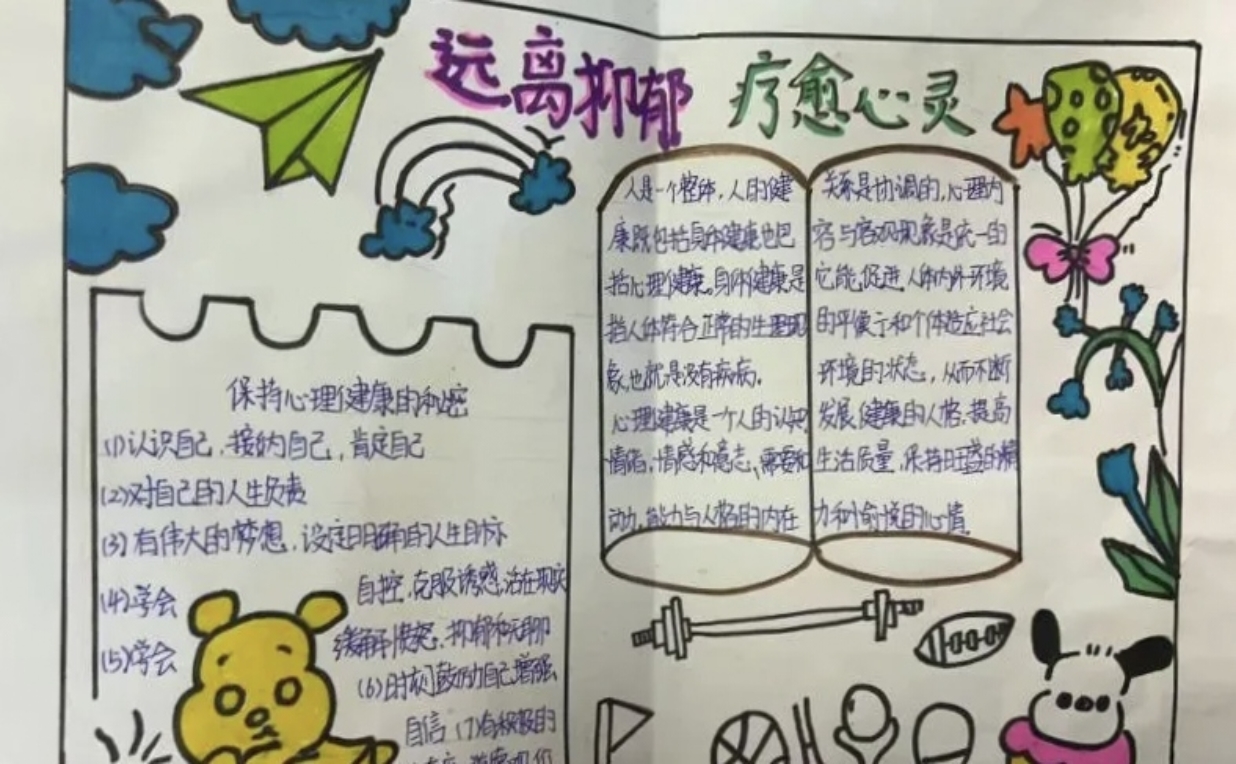 远离抑郁 疗愈心灵
人是一个整体，人的健
康既包括身体健康也包
括心理健康。身体健康是
指人体符合正常的生理现
象，也就是没有疾病。
心理健康是一个人的认知
情绪，情感和意志、需要和
动力，能力与人格的内在
关系是协调的，心理内
容与客观现象是统一的
它能促进人体内外环境
的平衡和个体适应社会
环境的状态，从而不断
发展健康的人格，提高
生活质量，保持旺盛的精
力和愉悦的心情。
保持心理健康的秘密
(1)认识自己，接纳自己，肯定自己
(2)对自己的人生负责
(3)有伟大的梦想，设定明确的人生目标
(4)学会 自控，克服诱惑，活在现实
(5)学会 缓解愤怒、抑郁和无聊
(6)时刻鼓励自己增强
自信 (7)有积极的